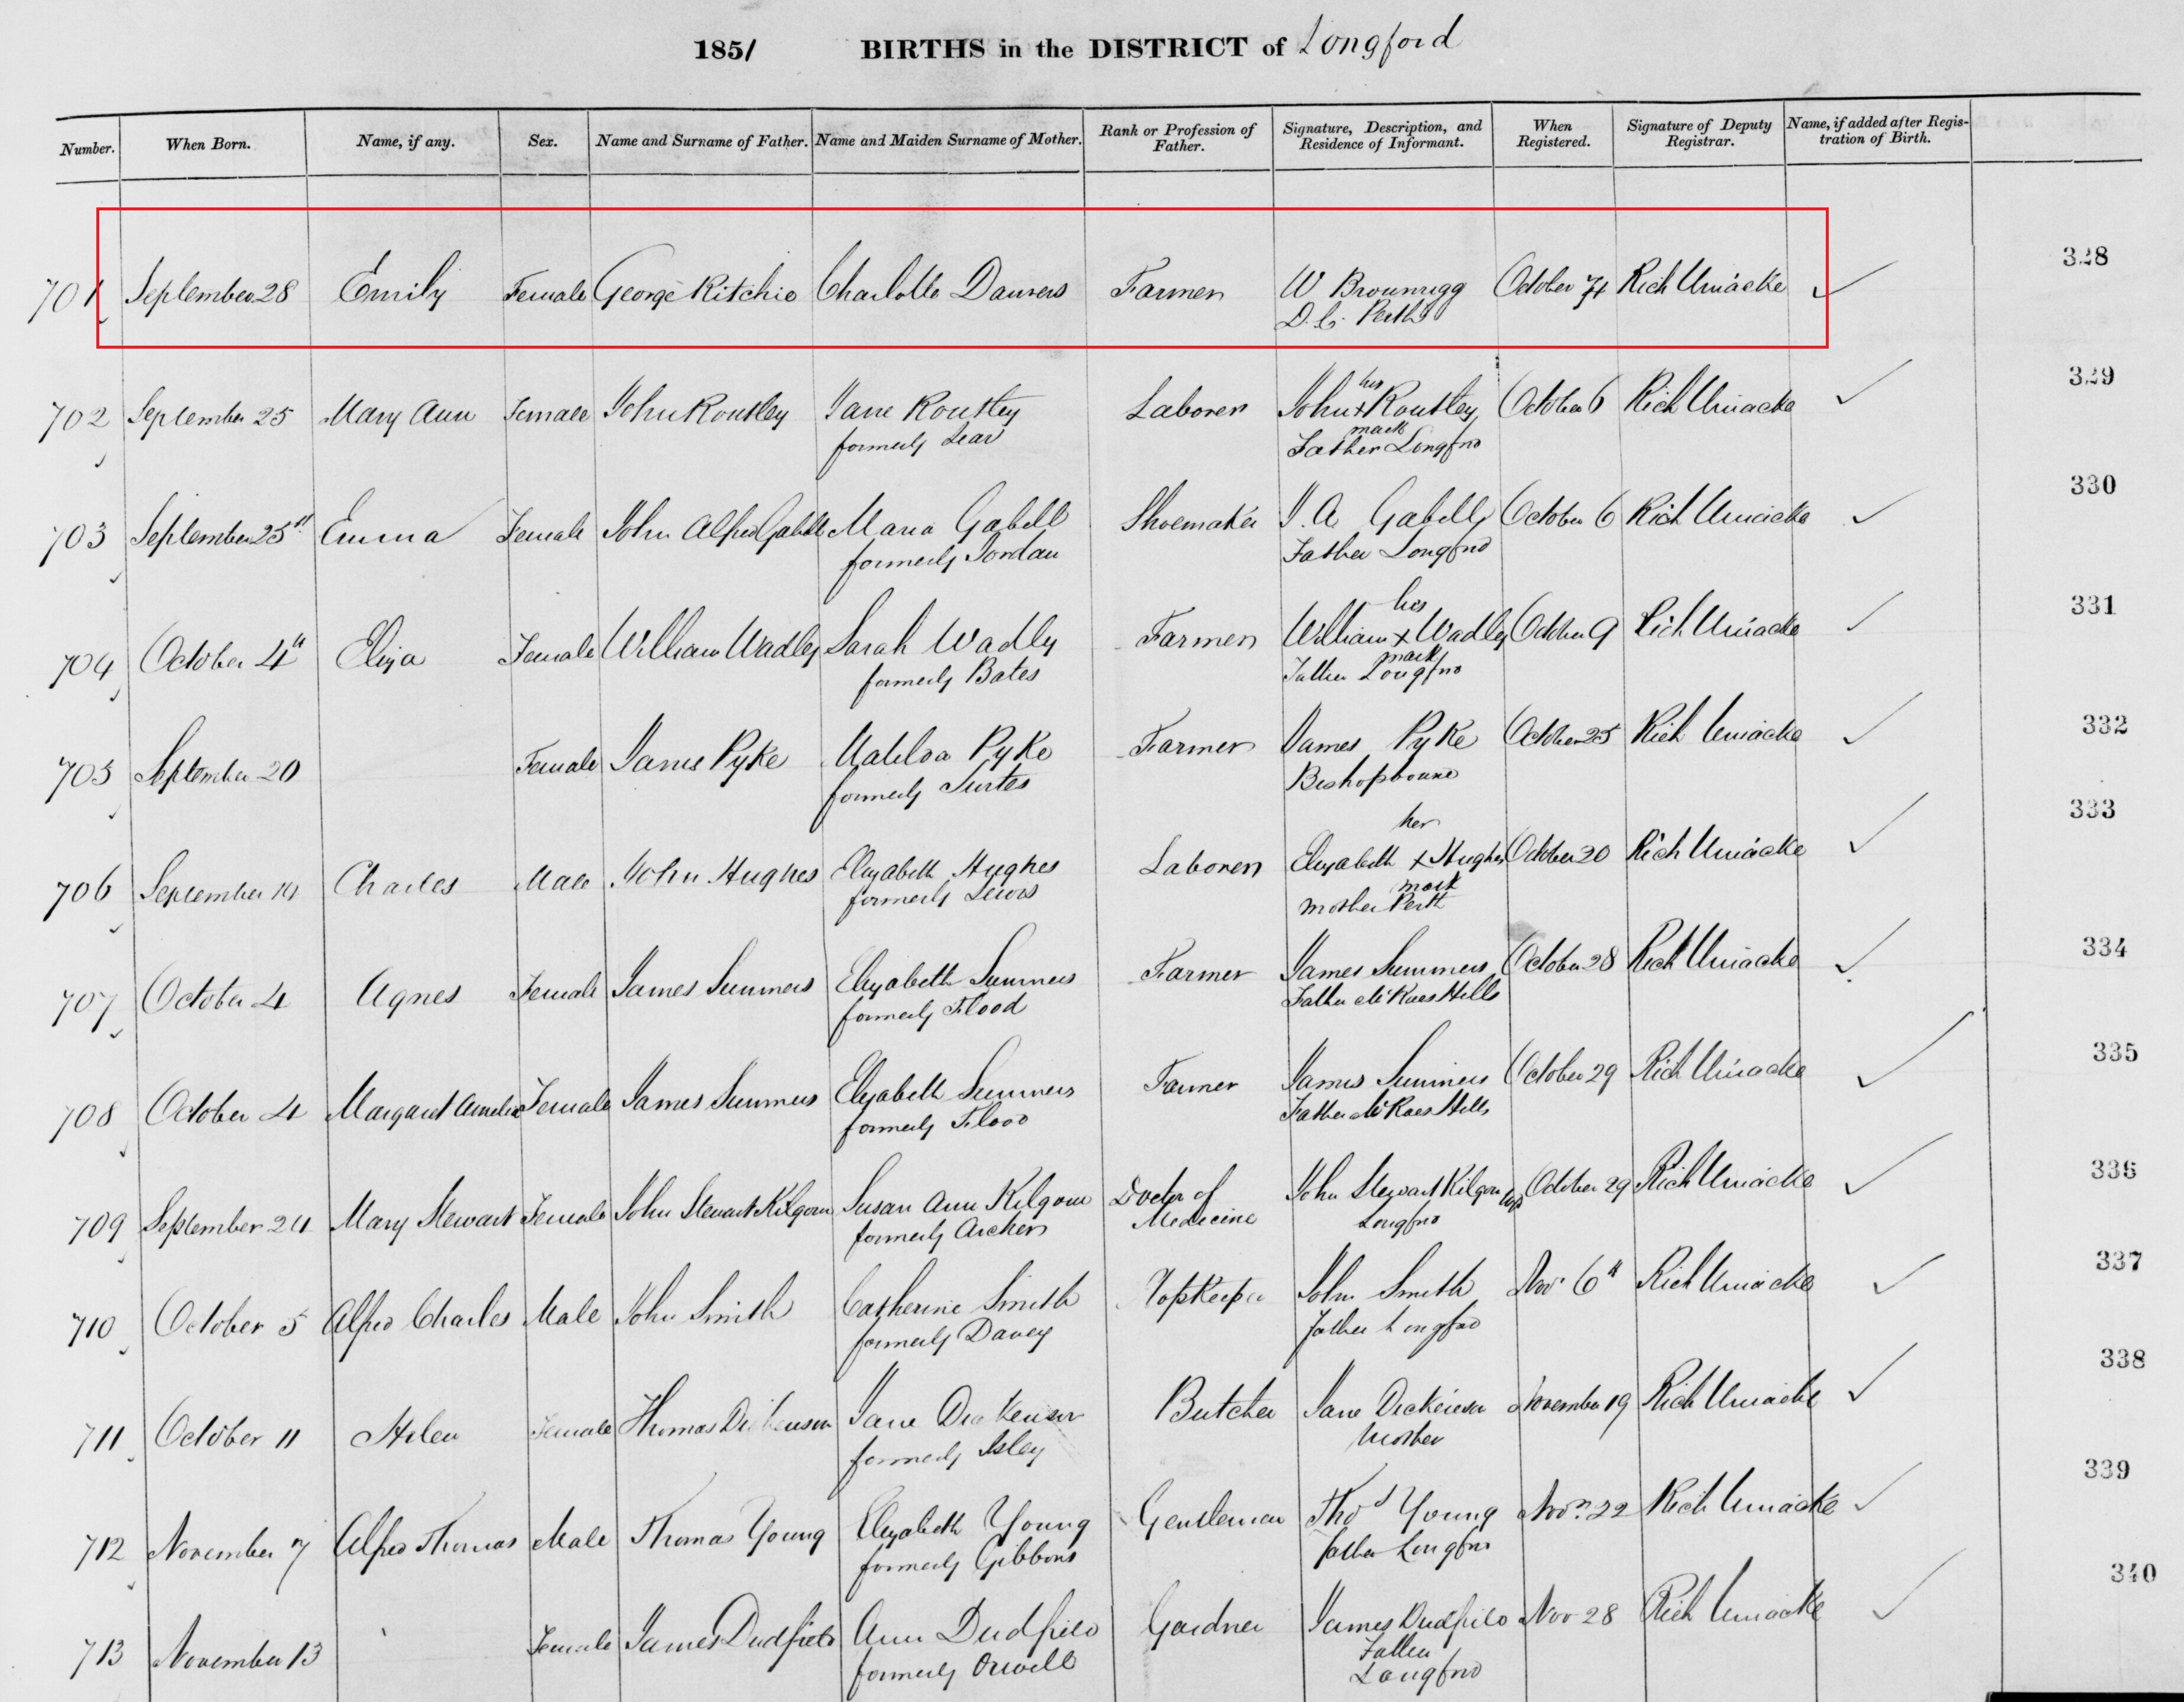 1851 BIRTHS in the DISTRICT of Longford
Number. When Born. Name, if any. Sex. Name and Surname of Father. Name and Maiden Surname of Mother. Rank or Profession of Father. Signature, Description, and Residence of Informant. When Registered. Signature of Deputy Registrar. Name, if added after Registration of Birth.
328
701 September 28 Emily Female George Ritchie Charlotte Danvers Farmer W Brownrigg October Rich Uniacke
D. C. Perth
329
702 September 25 Mary Ann Female John Routley Jane Routley Laborer John x Routley October 6 Rich Uniacke
his
formerly Lear
mark
Father Longfrd
330
703 September 25th Emma Female John Alfred Gabell Maria Gabell Shoemaker J. A Gabell October 6 Rich Uniacke
formerly Jordan
Father Longfrd
331
704 October 4th Eliza Female William Wadley Sarah Wadly Farmer William x Wadley October 9 Rich Uniacke
his
formerly Bates
mark
Father Longfrd
332
705 September 20 Female James Pyke Matilda Pyke Farmer James Pyke October 25 Rich Uniacke
formerly Surtes
Bishopbourne
333
706 September Charles Male John Hughes Elizabeth Hughes Laborer Elizabeth x Hughes October 20 Rich Uniacke
her
formerly Lewis
mark
mother Perth
334
707 October 4 Agnes Female James Summers Elizabeth Summers Farmer James Summers October 28 Rich Uniacke
formerly Flood
Father McRaes Hills
335
708 October 4 Margaret Amelia Female James Summers Elizabeth Summers Farmer James Summers October 29 Rich Uniacke
formerly Flood
Father McRaes Hills
336
709 September 24 Mary Stewart Female John Stewart Kilgour Susan Ann Kilgour Doctor of John Stewart Kilgour October 29 Rich Uniacke
formerly Archer
Medicine
Longfrd
337
710 October 5 Alfred Charles Male John Smith Catherine Smith John Smith Nov 6th Rich Uniacke
formerly Davey
Father Longfrd
338
711 October 11 Helen Female Thomas Dickenson Jane Dickenson Butcher Jane Dickenson November 19 Rich Uniacke
formerly Isley
Mother
339
712 November 7 Alfred Thomas Male Thomas Young Elizabeth Young Gentleman Thos Young Novr. 22 Rich Uniacke
formerly Gibbons
father Longfrd
340
713 November 13 Female James Dudfield Ann Dudfield Gardner James Dudfield Nov 28 Rich Uniacke
formerly Orwell
Father
Longfrd